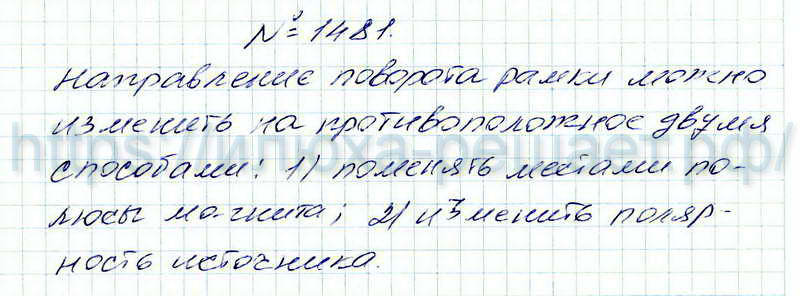 № 1481.
Направление поворота рамки можно
изменить на противоположное двумя
https://илюха-решает.рф/
способами: 1) поменять местами по-
люсы магнита; 2) изменить поляр-
ность источника.